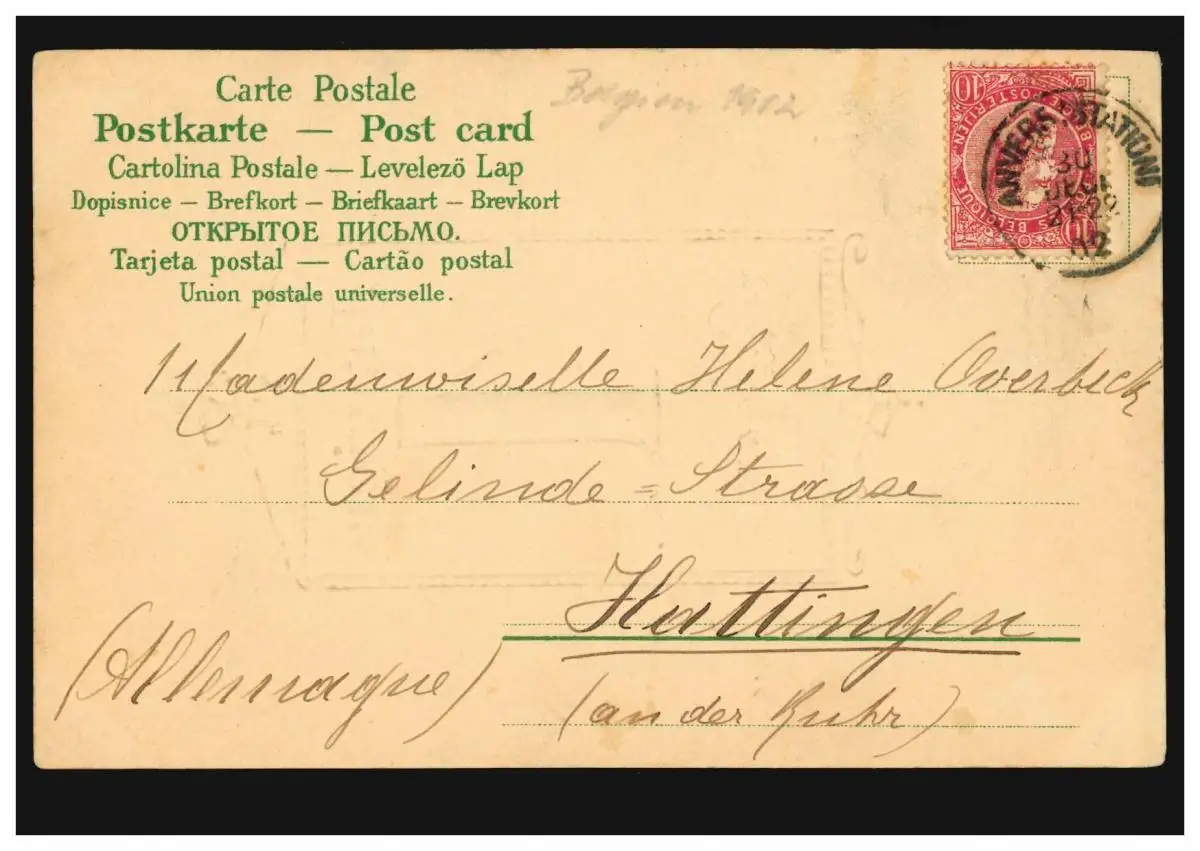 Carte Postale
Postkarte — Post card
Cartolina Postale — Levelező Lap
Dopisnice — Brefkort — Briefkaart — Brevkort
ОТКРЫТОЕ ПИСЬМО.
Tarjeta postal — Cartão postal
Union postale universelle.
Belgien 1902
10
POSTERIJEN
BELGIQUE
10
ANVERS (STATION)
30
DEC
02
Mademoiselle Helene Overbeck
Gelinde = Strasse
Hattingen
(an der Ruhr)
(Allemagne)